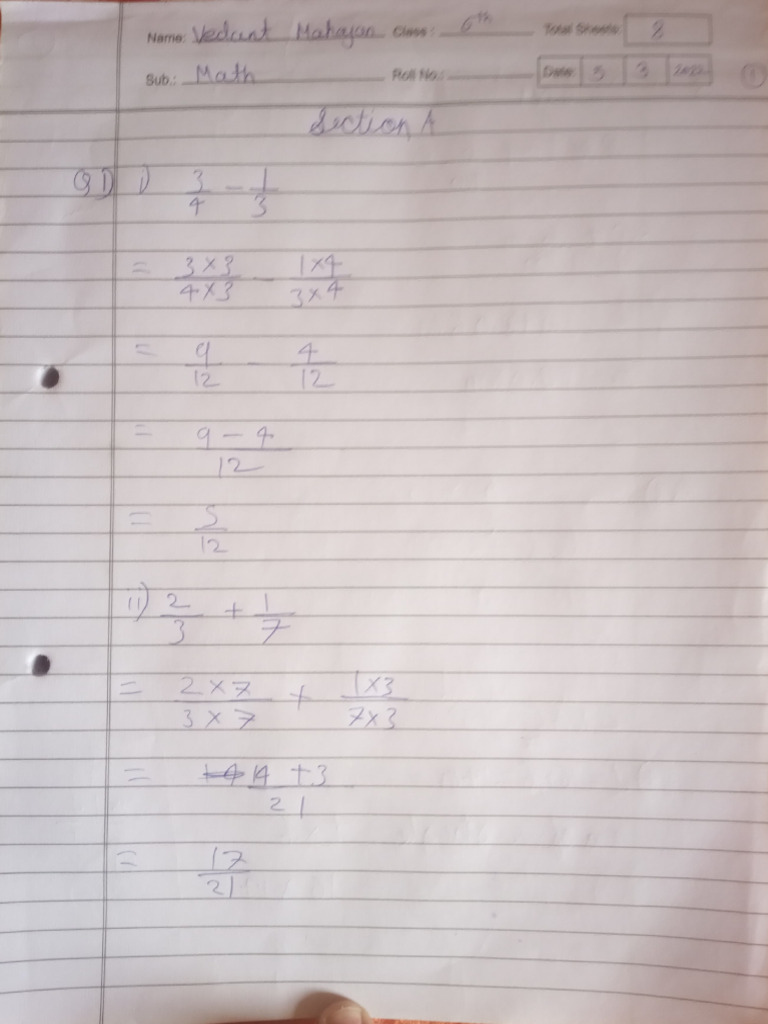 Name: Vedant Mahajan Class: 6th Total Sheets: 8
Sub.: Math Roll No.: Date: 5 3 2022 1
Section A
Q1) i) 3/4 - 1/3
= 3×3/4×3 - 1×4/3×4
= 9/12 - 4/12
= 9 - 4/12
= 5/12
ii) 2/3 + 1/7
= 2×7/3×7 + 1×3/7×3
= 14 + 3/21
= 17/21